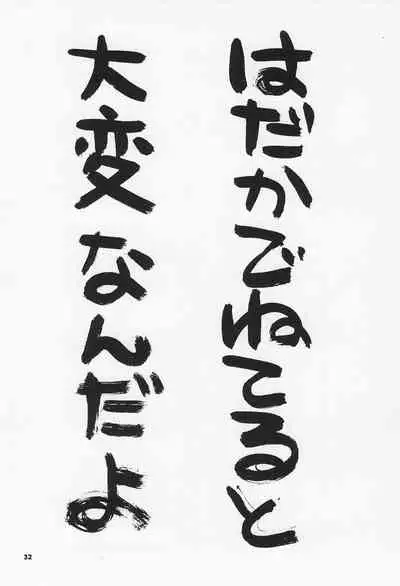 はだかでねてると
大変なんだよ
32